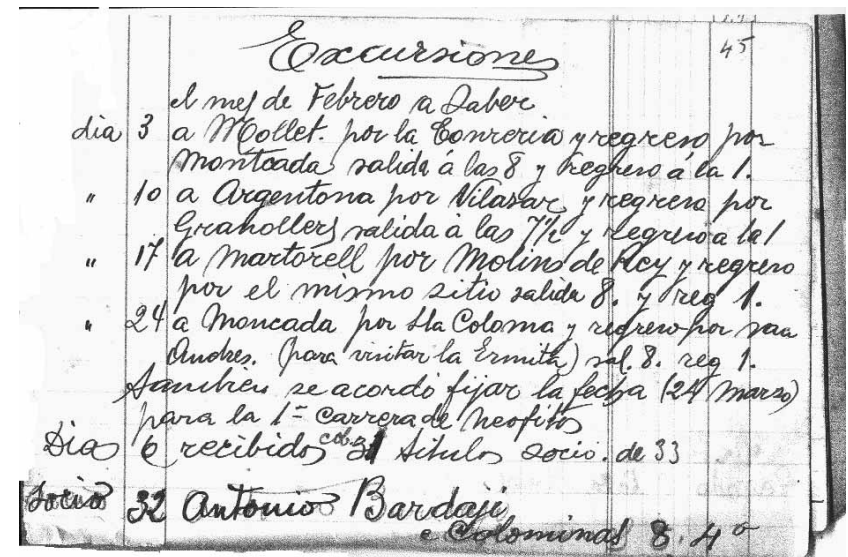 45
Excursiones
el mes de Febrero a Saber
dia 3 a Mollet. por la Conreria y regreso por
Montcada salida á las 8 y regreso á la 1.
" 10 a Argentona por Vilasar y regreso por
Granollers salida á las 7½ y regreso a la 1
" 17 a Martorell por Molins de Rey y regreso
por el mismo sitio salida 8. y reg 1.
" 24 a Moncada por Sta Coloma y regreso por san
Andres. (para visitar la Ermita) sal. 8. reg 1.
Tambien se acordó fijar la fecha (24 Marzo)
para la 1ª Carrera de Neofitos
Dia 6 recibidos 31 titulos socio. de 33
Socio 32 Antonio Bardaji
Colominas 8. 4º